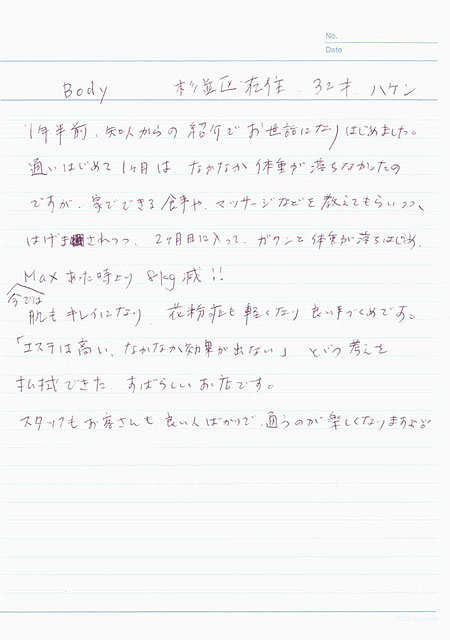 No.
Date
Body 杉並区在住. 32才. ハケン
1年半前、知人からの紹介でお世話になりはじめました。
通いはじめて1ヶ月は、なかなか体重が落ちなかったの
ですが、家でできる食事や、マッサージなどを教えてもらいつつ、
はげまされつつ、2ヶ月目に入って、ガクンと体重が落ちはじめ、
Maxあった時より 8kg減!!
今では
肌もキレイになり、花粉症も軽くなり良い事づくめです。
「エステは高い、なかなか効果が出ない」という考えを
払拭できた、すばらしいお店です。
スタッフもお客さんも良い人ばかりで、通うのが楽しくなりますよ